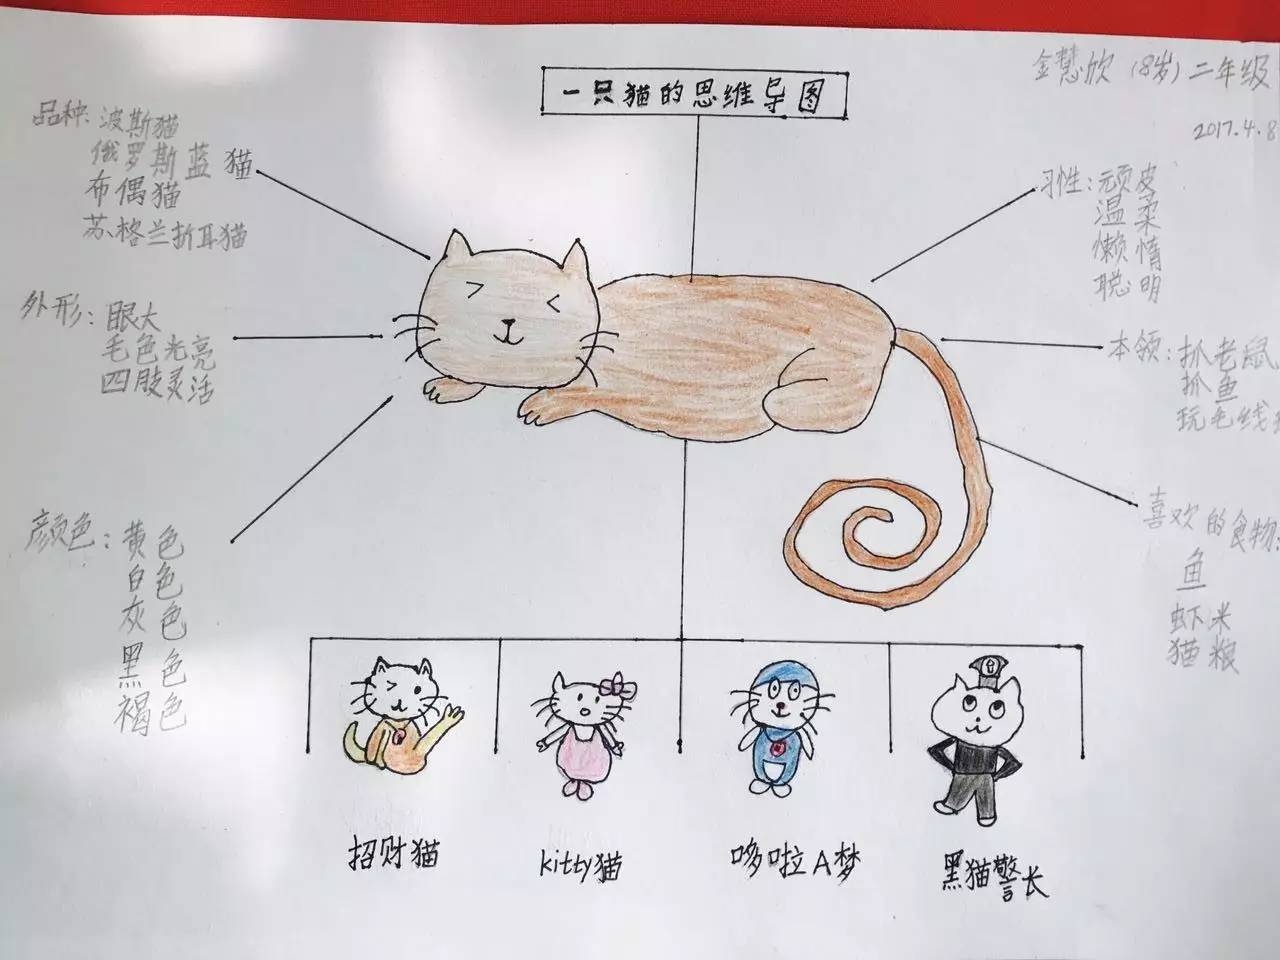 一只猫的思维导图
金慧欣（8岁）二年级
2017.4.8
品种：波斯猫
俄罗斯蓝猫
布偶猫
苏格兰折耳猫
外形：眼大
毛色光亮
四肢灵活
颜色：黄色
白色
灰色
黑色
褐色
习性：顽皮
温柔
懒惰
聪明
本领：抓老鼠
抓鱼
玩毛线
喜欢的食物：
鱼
虾米
猫粮
招财猫
kitty猫
哆啦A梦
黑猫警长